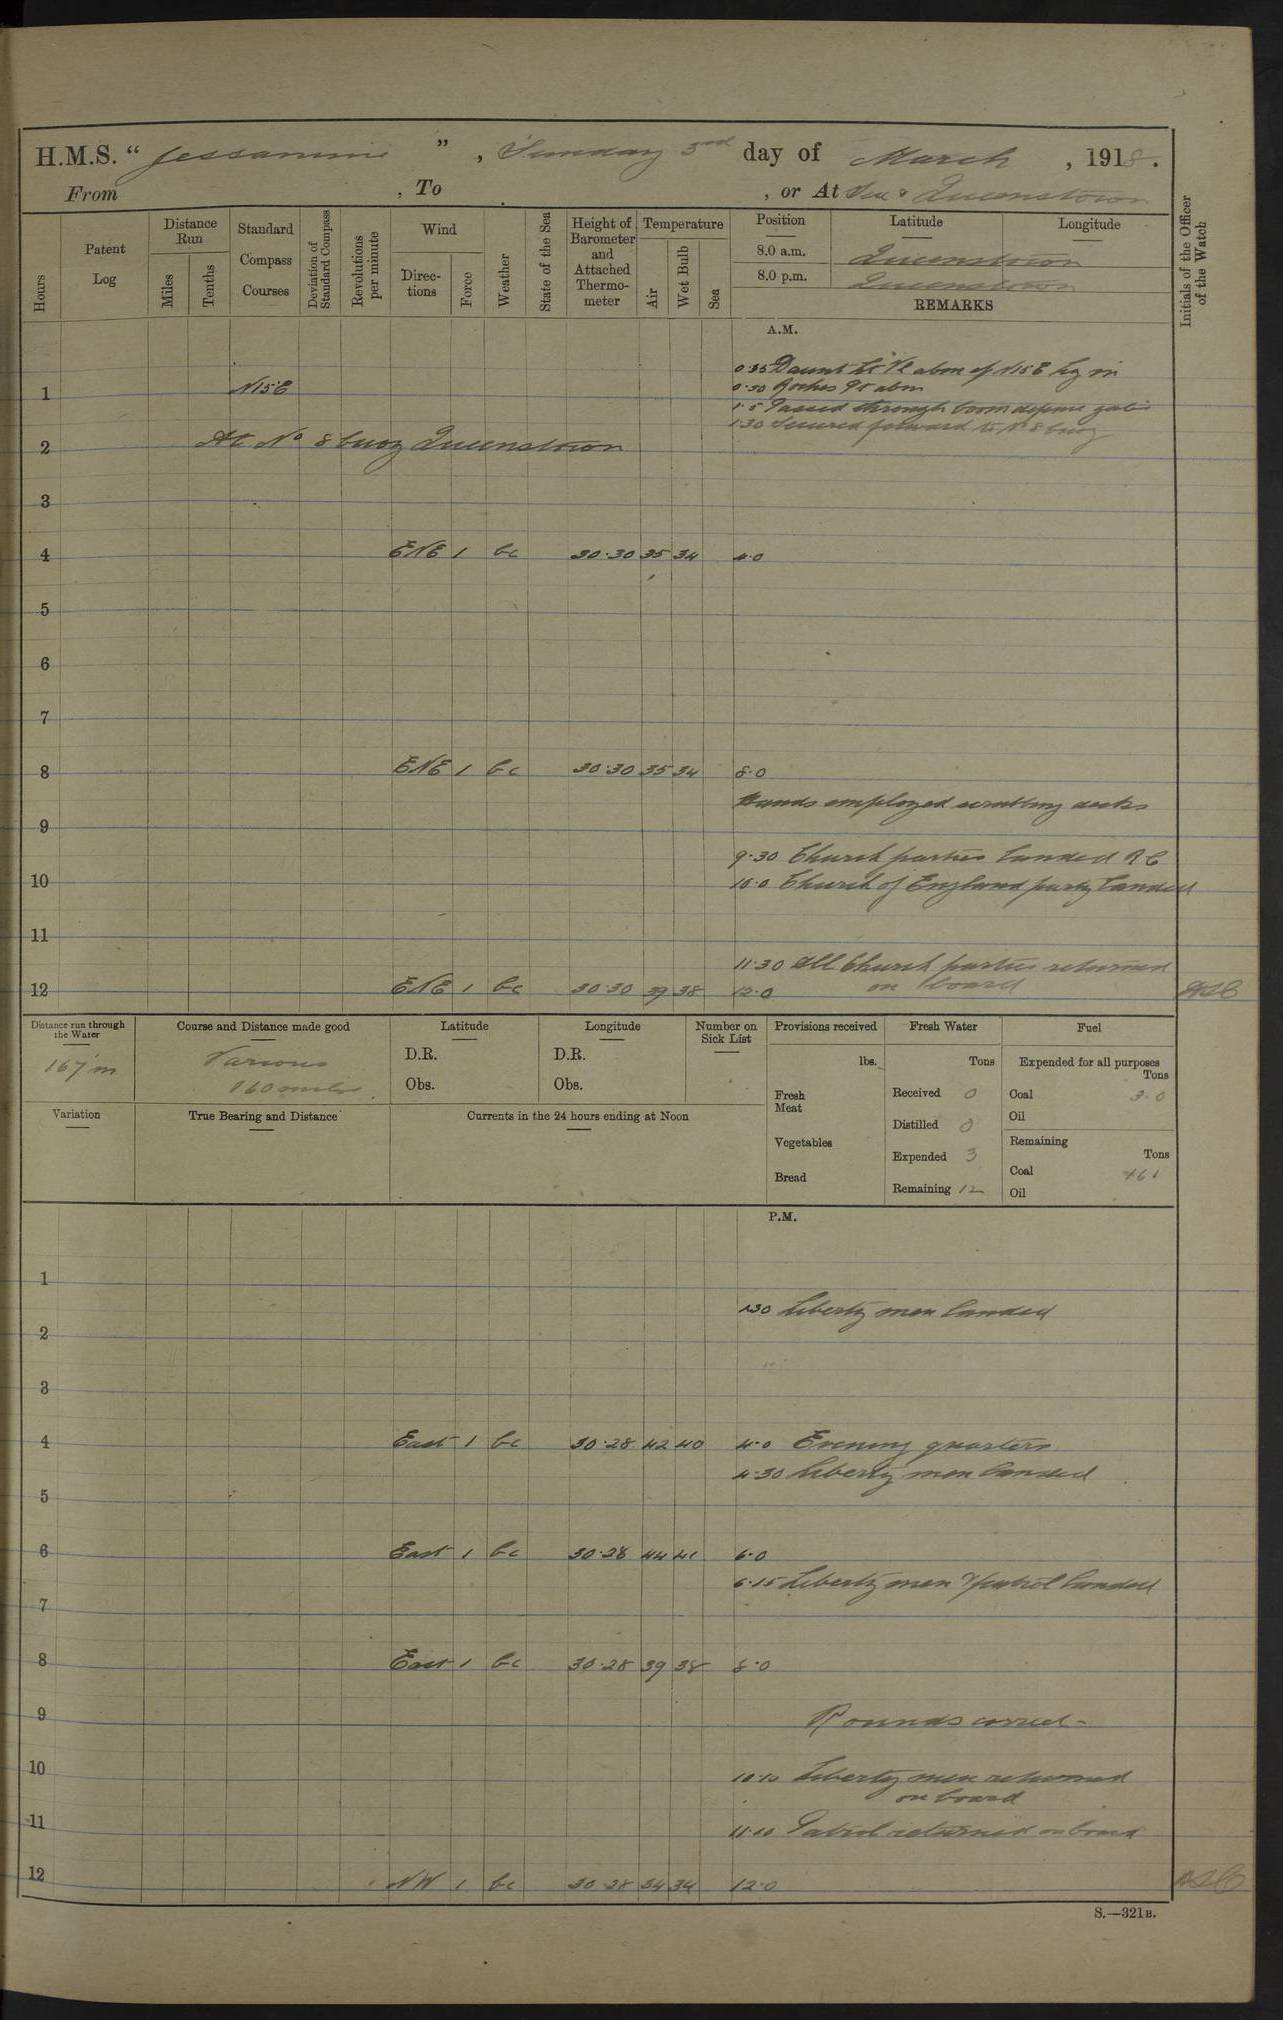 H.M.S. “ Jessamine ” , Sunday 3rd day of March , 1918.
From , To , or At Sea & Queenstown
Hours
Patent Log
Distance Run
Miles
Tenths
Standard Compass Courses
Deviation of Standard Compass
Revolutions per minute
Wind
Direc-tions
Force
Weather
State of the Sea
Height of Barometer and Attached Thermo-meter
Temperature
Air
Wet Bulb
Sea
Position
Latitude
Longitude
8.0 a.m. Queenstown
8.0 p.m. Queenstown
REMARKS
Initials of the Officer of the Watch
A.M.
0.35 Daunt Lt Vl abm of N15E
1 N15E 0.50 Roches Pt abm
1.5 Passed through boom defence gates
1.30 Secured forward to No 8 buoy
2 At No 8 buoy Queenstown
3
4 ENE 1 bc 30.30 35 34 4.0
5
6
7
8 ENE 1 bc 30.30 35 34 8.0
Hands employed scrubbing decks
9
9.30 Church parties landed RC
10 10.0 Church of England party landed
11
11.30 All Church parties returned
on board
12 ENE 1 bc 30.30 39 38 12.0
Distance run through the Water
167 m
Course and Distance made good
Various
160 miles
Latitude
D.R.
Obs.
Longitude
D.R.
Obs.
Number on Sick List
Provisions received
lbs.
Fresh Meat
Vegetables
Bread
Fresh Water
Tons
Received 0
Distilled 0
Expended 3
Remaining 12
Fuel
Expended for all purposes
Tons
Coal 3.0
Oil
Remaining
Tons
Coal
Oil
Variation
True Bearing and Distance
Currents in the 24 hours ending at Noon
P.M.
1
1.30 Liberty men landed
2
3
4 East 1 bc 30.28 42 40 4.0 Evening quarters
4.30 Liberty men landed
5
6 East 1 bc 30.28 44 41 6.0
6.15 Liberty men & patrol landed
7
8 East 1 bc 30.28 39 38 8.0
9 Rounds correct
10 10.10 Liberty men returned
on board
11 11.10 Patrol returned on board
12 NW 1 bc 30.28 34 34 12.0
S.—321B.